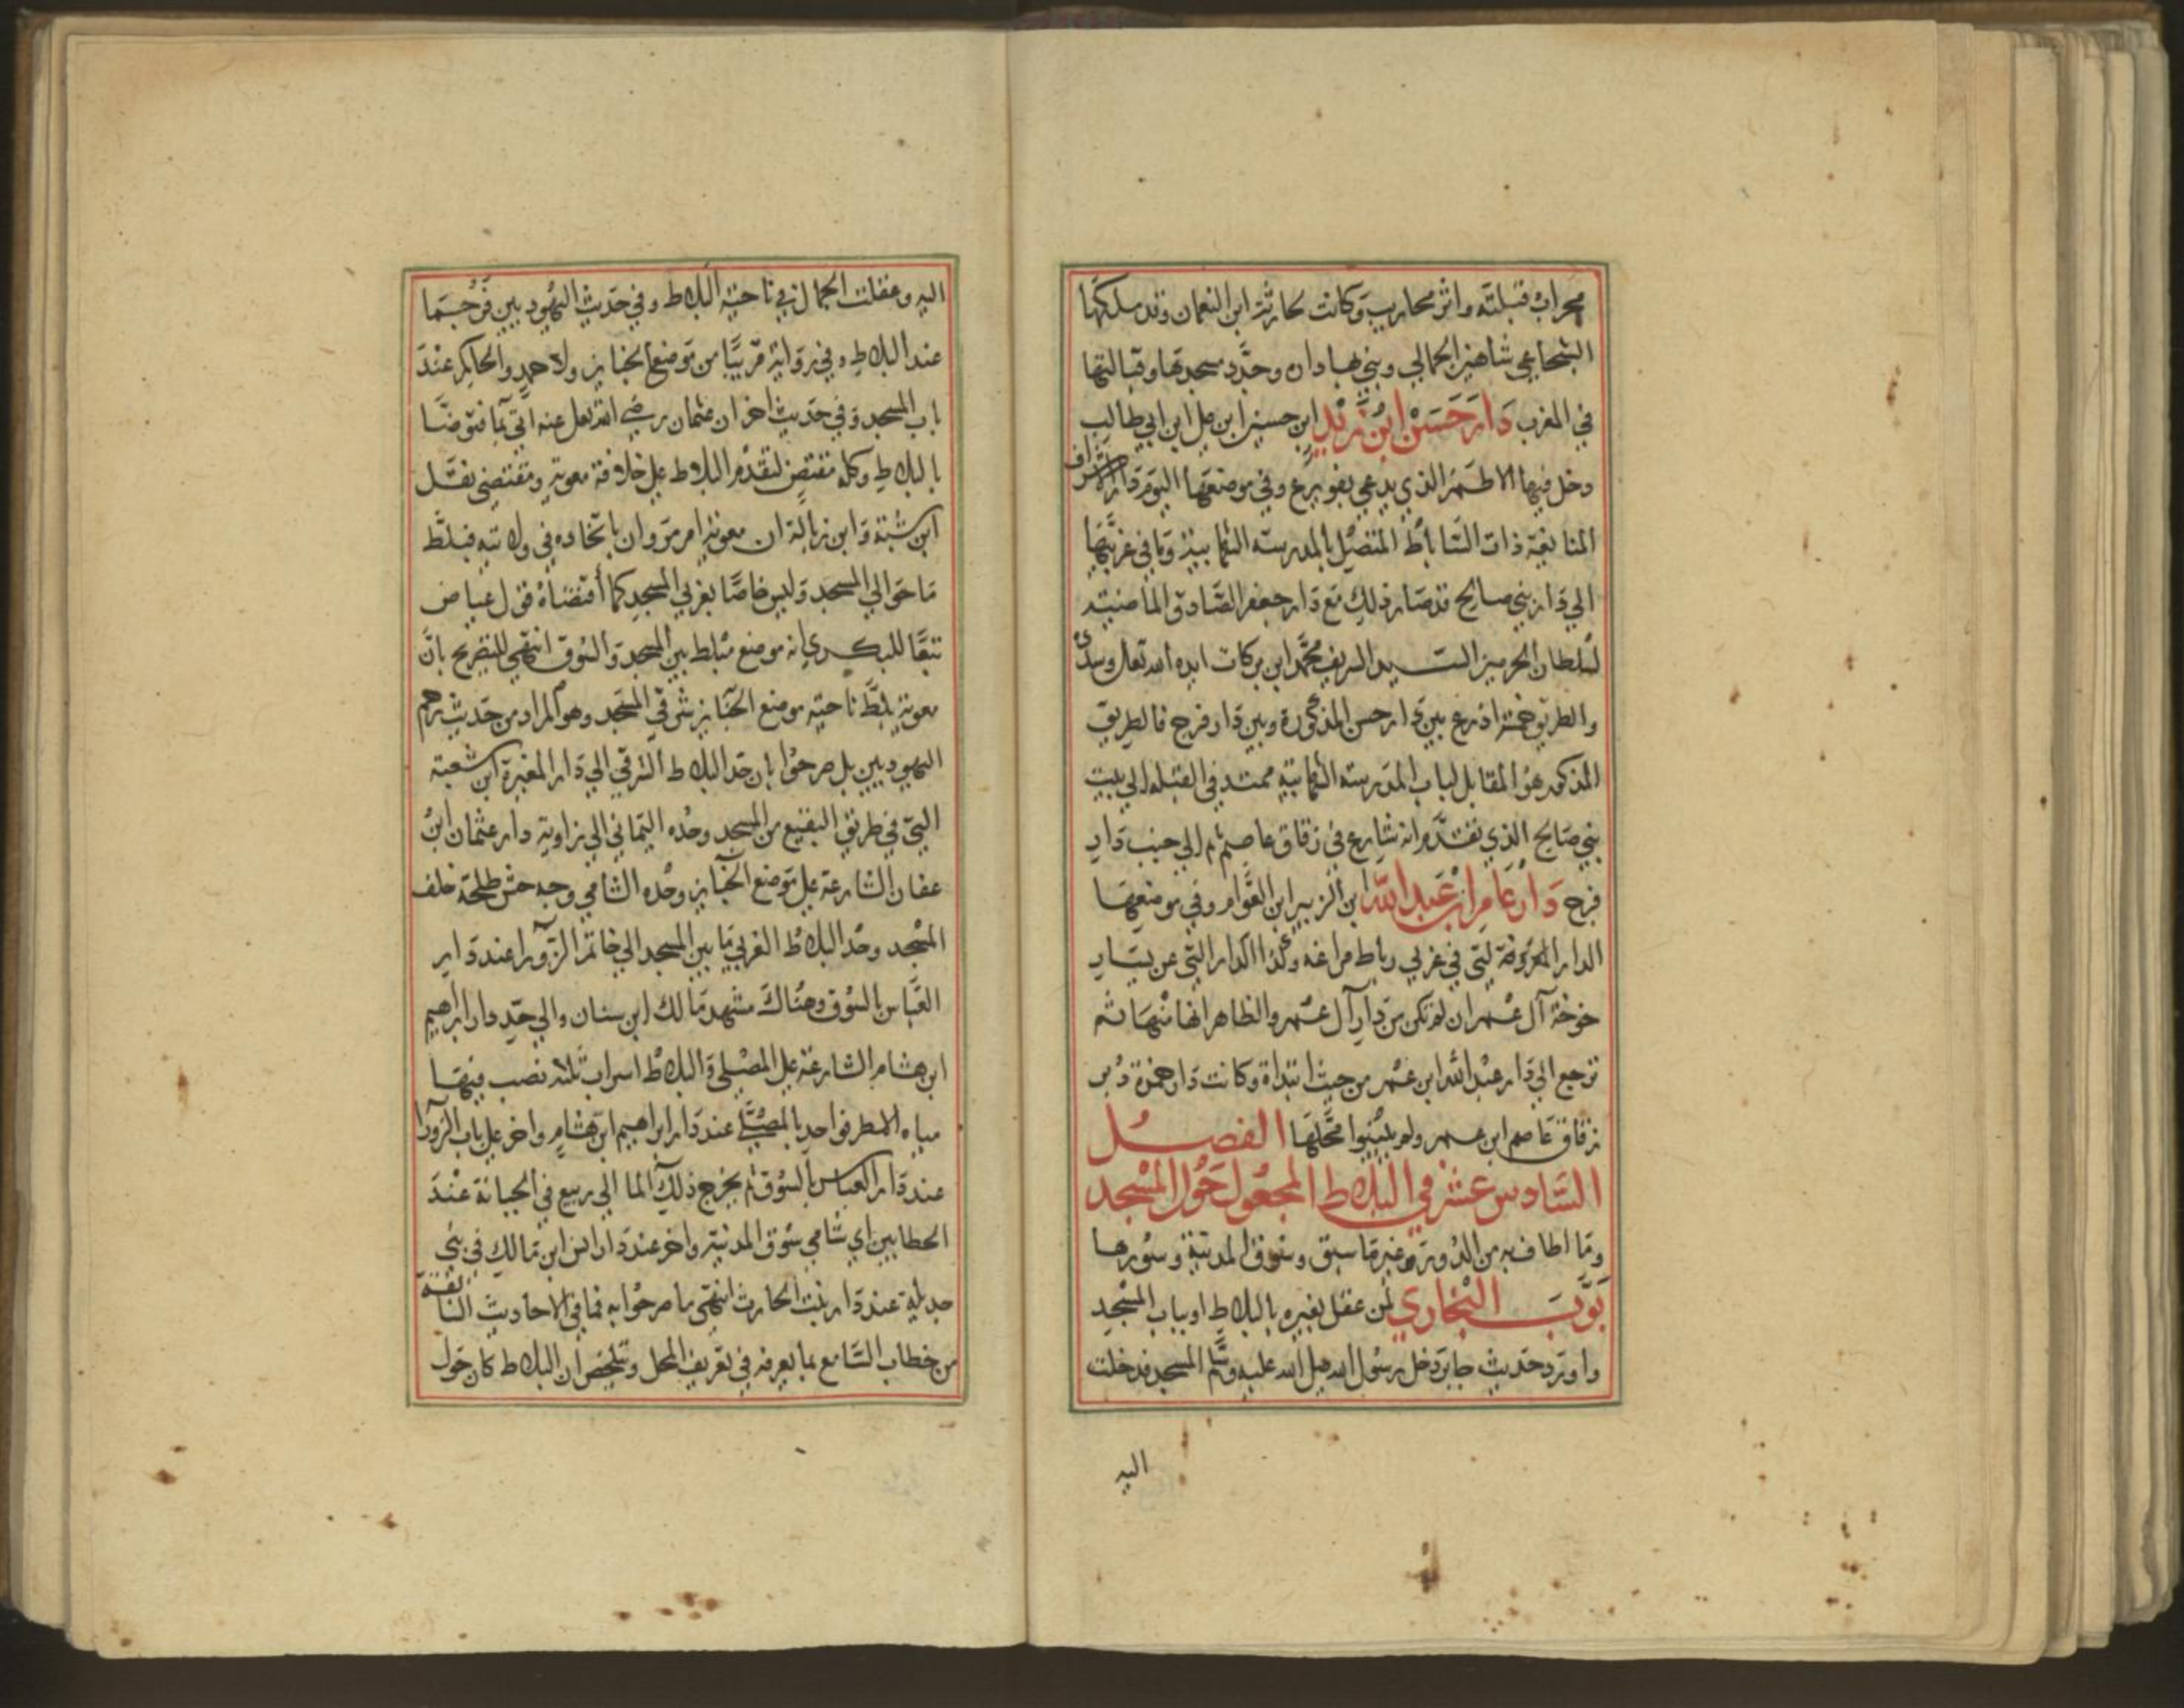 محراب قبلته واثر محاريب وكانت لحارثة ابن النعمان وقد ملكها
الشجاعي شاهين الجمالي وبني بها دارا وجدد مسجدها وقبالتها
في المغرب دار حسن ابن زيد ابن حسين ابن علي ابن ابي طالب
دخل فيها الاطم الذي يدعي بفويرع وفي موضعها اليوم دار الاشراف
المنايفة ذات الساباط المتصل بالمدرسة الشهابية وما في غربيها
الي دار بني صالح قد صار ذلك مع دار جعفر الصادق الماضية
لسلطان الحرمين السيد الشريف محمد ابن بركات ايده الله تعالى وسدده
والطريق خمسة اذرع بين دار حسن المذكورة وبين دار فرج فالطريق
المذكور هو المقابل لباب المدرسة الشهابية ممتد في القبلة الي بيت
بني صالح الذي تقدم انه شارع في زقاق عاصم ثم الي جنب دار
فرج دار عامر ابن عبد الله ابن الزبير ابن العوام وفي موضعها
الدار المعروفة التي في غربي رباط مراغه وكذا الدار التي عن يسار
خوخة آل عمر ان لم تكن من دار آل عمر والظاهر انها منها ثم
ترجع الي دار عبد الله ابن عمر من حيث ابتداة وكانت دار حمزة دبر
زقاق عاصم ابن عمر ولم يبينوا محلها الفصل
السادس عشر في البلاط المجعول حول المسجد
وما اطاف به من الدور غير ما سبق وسوق المدينة وسورها
بوب البخاري لمن عقل بعيره بالبلاط او بباب المسجد
واورد حديث جابر دخل رسول الله صلى الله عليه وسلم المسجد فدخلت
اليه
اليه وعقلت الجمل في ناحية البلاط وفي حديث اليهوديين فرجما
عند البلاط وفي رواية قريبا من موضع الجنايز ولاحمد والحاكم عند
باب المسجد وفي حديث اخر ان عثمان رضي الله تعالى عنه اتي بما فتوضا
بالبلاط وكله مقتض لتقدم البلاط على خلافة معوية ومقتضي نقل
ابن شبة وابن زبالة ان معوية امر مروان باتخاده في ولايته فبلط
ما حوالي المسجد وليس خاصا بغربي المسجد كما اقتضاه قول عياض
تبعا للبكري انه موضع مبلط بين المسجد والسوق انتهي للتصريح بان
معوية بلط ناحية موضع الجنايز شرقي المسجد وهو المراد من حديث رجم
اليهوديين بل صرحوا بان حد البلاط الشرقي الي دار المغيرة ابن شعبة
التي في طريق البقيع من المسجد وحده اليماني الي زاوية دار عثمان ابن
عفان الشارعة على موضع الجنايز وحده الشامي وجه حش طلحة خلف
المسجد وحد البلاط الغربي ما بين المسجد الي خاتم الزورا عند دار
العباس بالسوق وهناك مشهد مالك ابن سنان والي حد دار ابراهيم
ابن هشام الشارعة على المصلي والبلاط اسراب ثلثه نصب فيها
مياه المطر فواحد بالمصلي عند دار ابراهيم ابن هشام واخر على باب الزورا
عند دار العباس بالسوق ثم يخرج ذلك الما الي ربيع في الجبانة عند
الحطابين اي شامي سوق المدينة واخر عند دار انس ابن مالك في بني
جديلة عند دار بنت الحارث انتهي ما صرحوا به فما في الاحاديث السابقة
من خطاب السامع بما يعرفه في تعريف المحل وتلخص ان البلاط كان حول